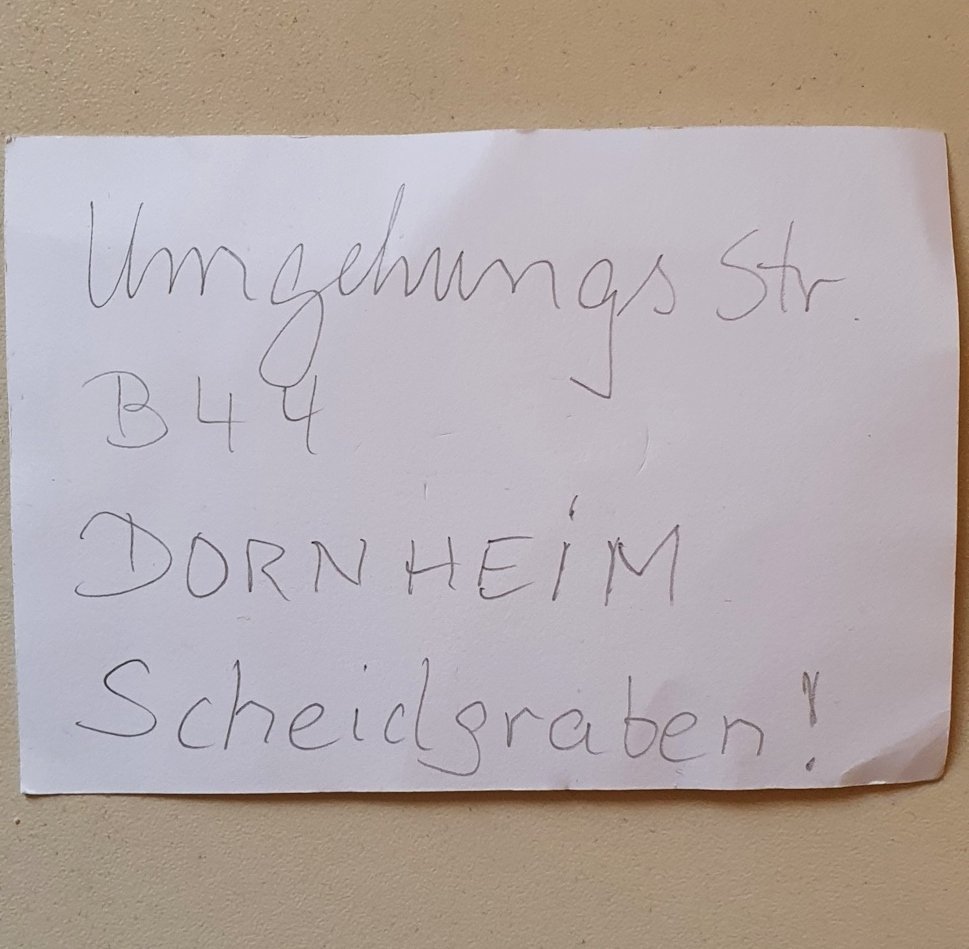 Umgehungs Str.
B44
DORNHEiM
Scheidgraben!